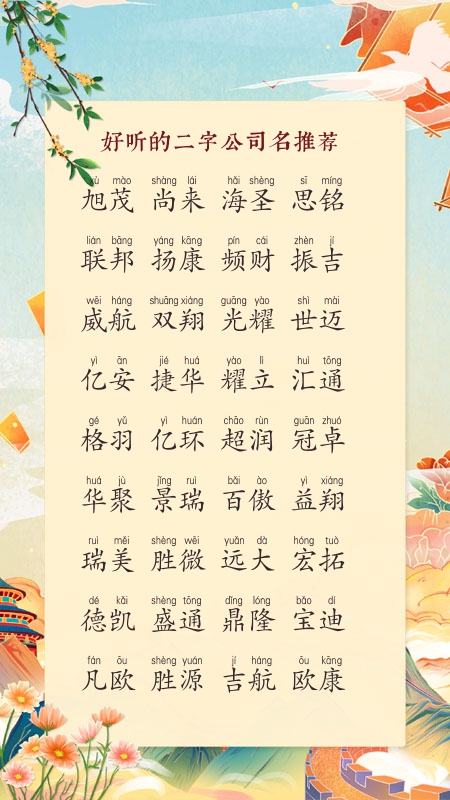 好听的二字公司名推荐
xù mào shàng lái hǎi shèng sī míng
旭茂 尚来 海圣 思铭
lián bāng yáng kāng pín cái zhèn jí
联邦 扬康 频财 振吉
wēi háng shuāng xiáng guāng yào shì mài
威航 双翔 光耀 世迈
yì ān jié huá yào lì huì tōng
亿安 捷华 耀立 汇通
gé yǔ yì huán chāo rùn guān zhuó
格羽 亿环 超润 冠卓
huá jù jǐng ruì bǎi ào yì xiáng
华聚 景瑞 百傲 益翔
ruì měi shèng wēi yuǎn dà hóng tuò
瑞美 胜微 远大 宏拓
dé kǎi shèng tōng dǐng lóng bǎo dí
德凯 盛通 鼎隆 宝迪
fán ōu shèng yuán jí háng ōu kāng
凡欧 胜源 吉航 欧康